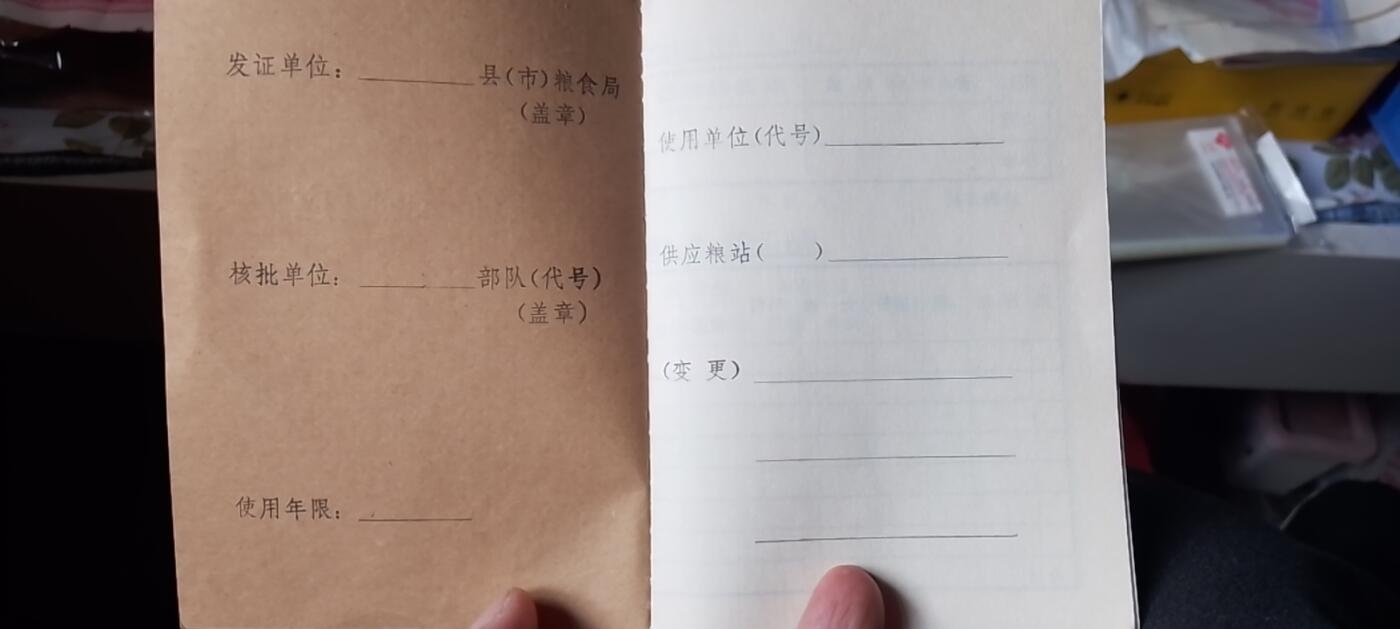 发证单位：________县(市)粮食局
(盖章)
核批单位：________部队(代号)
(盖章)
使用年限：________
使用单位(代号)____________
供应粮站(　　)____________
(变 更)____________